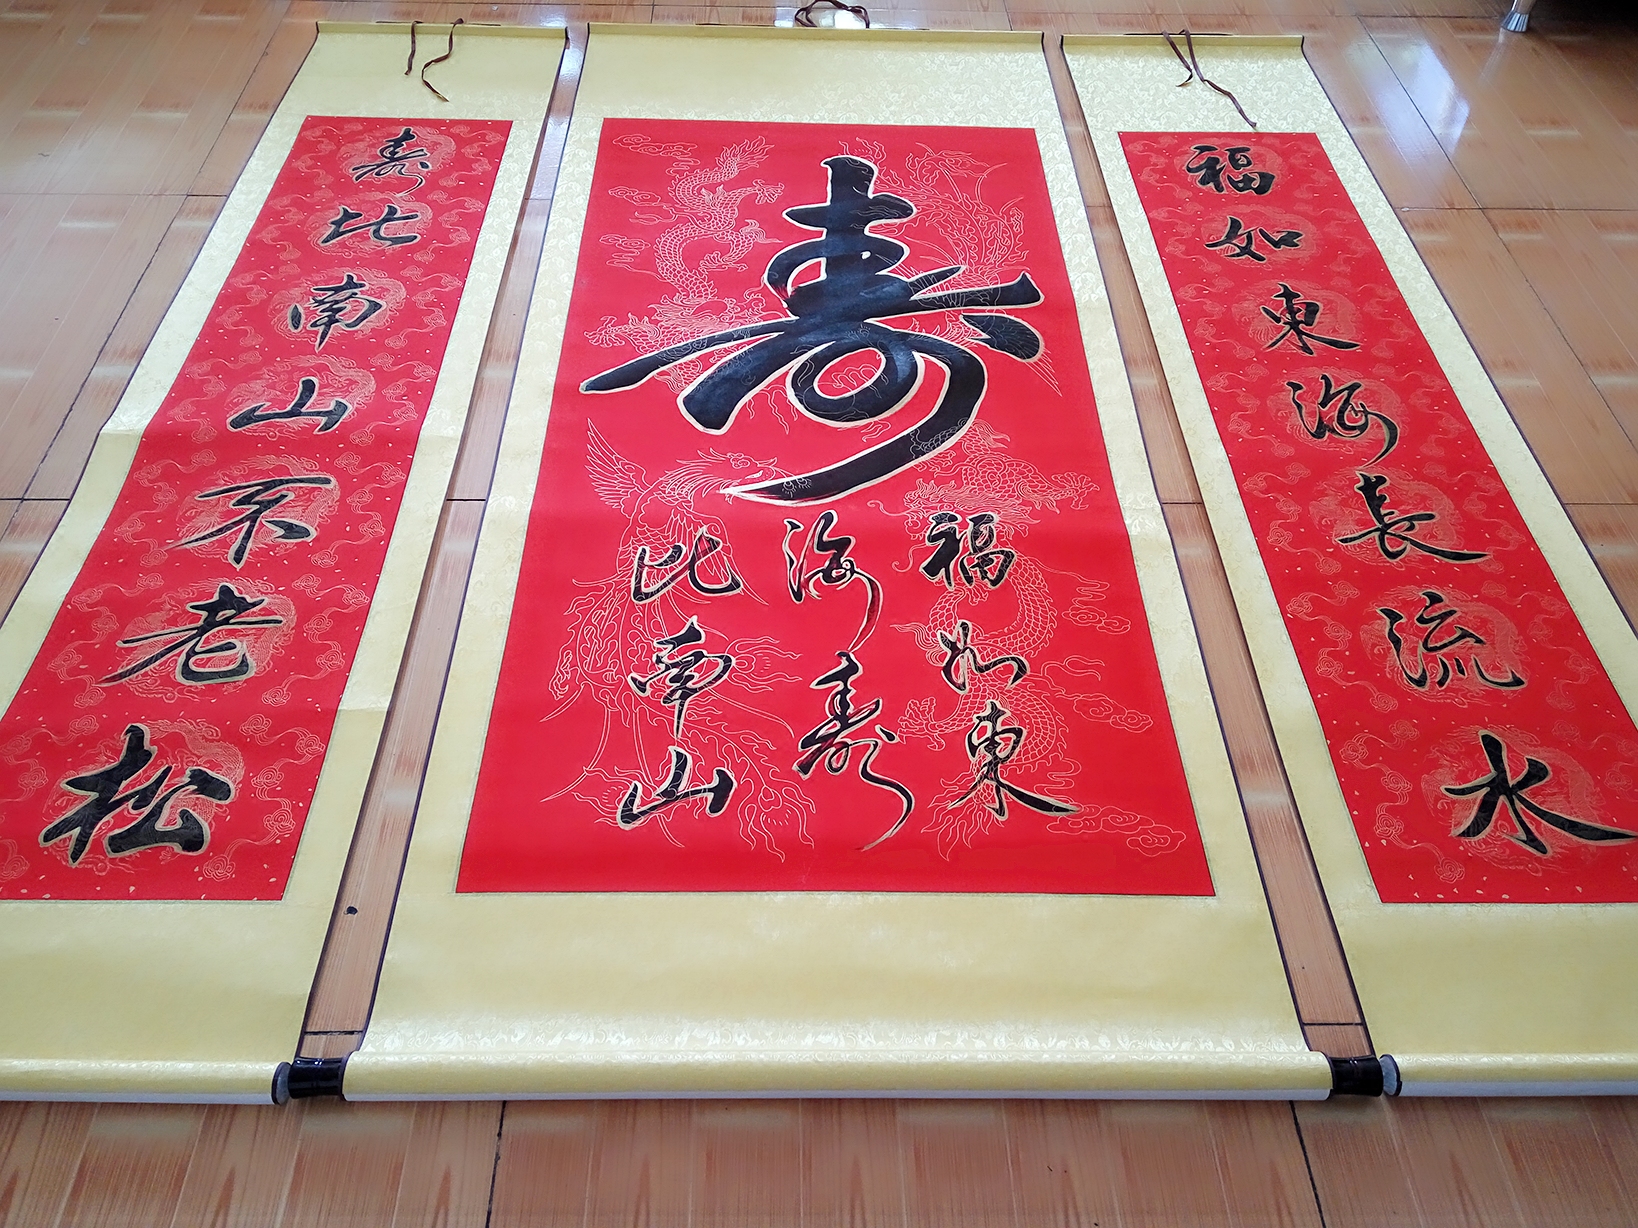 福如東海長流水
寿
福如東
海寿
比南山
寿比南山不老松